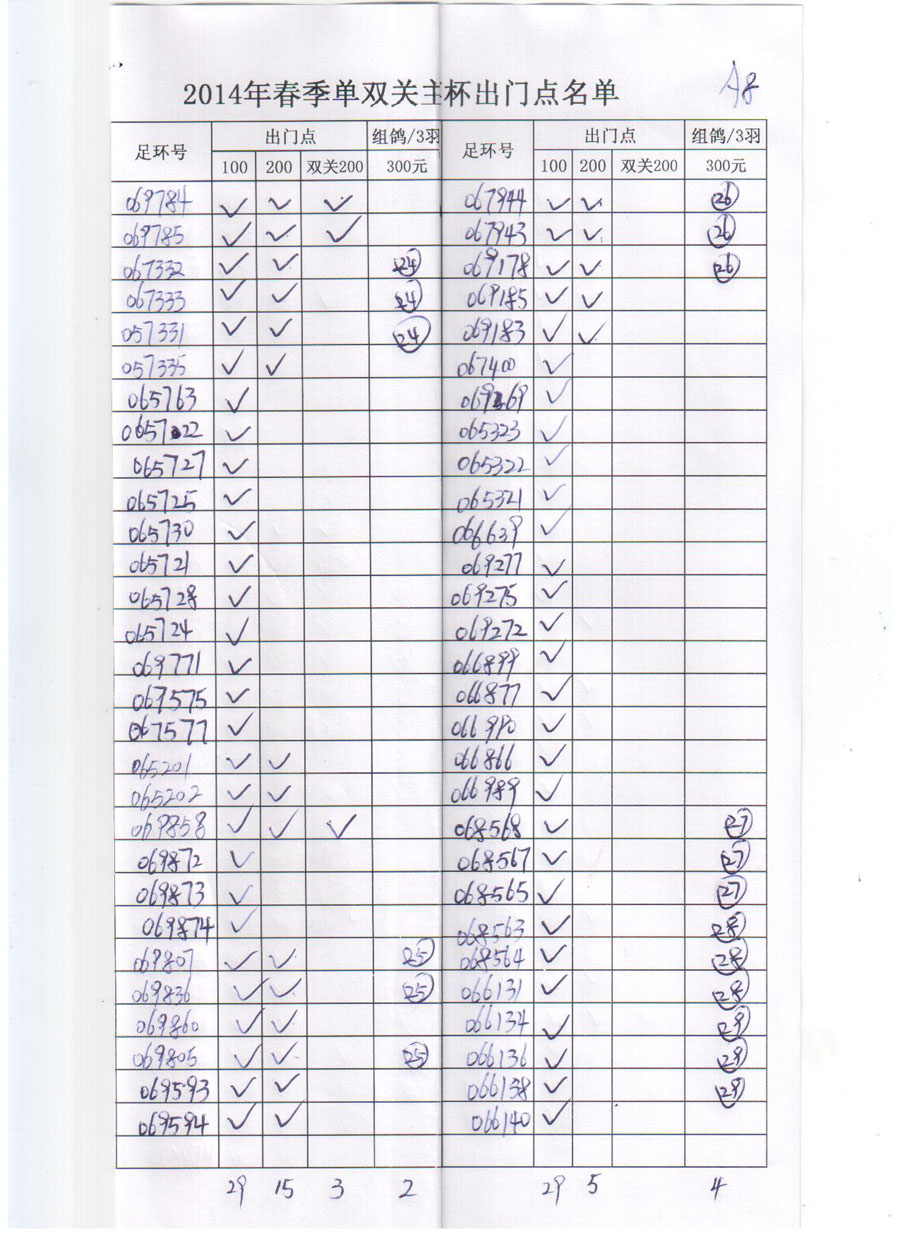 2014年春季单双关主杯出门点名单 A8
足环号 出门点 组鸽/3羽 足环号 出门点 组鸽/3羽
100 200 双关200 300元 100 200 双关200 300元
069784 ✓ ✓ ✓ 067944 ✓ ✓ 26
069785 ✓ ✓ ✓ 067943 ✓ ✓ 26
067332 ✓ ✓ 24 069178 ✓ ✓ 26
067333 ✓ ✓ 24 069185 ✓ ✓
057331 ✓ ✓ 24 069183 ✓ ✓
057335 ✓ ✓ 067400 ✓
065763 ✓ ✓
065722 ✓ 065323 ✓
065727 ✓ 065322 ✓
065725 ✓ 065321 ✓
065730 ✓ 066639 ✓
065721 ✓ 069277 ✓
065728 ✓ 069275 ✓
065724 ✓ 069272 ✓
069771 ✓ 066899 ✓
067575 ✓ 066877 ✓
067577 ✓ ✓
065201 ✓ ✓ 066866 ✓
065202 ✓ ✓ 066989 ✓
069858 ✓ ✓ ✓ 068568 ✓ 27
069872 ✓ 068567 ✓ 27
069873 ✓ 068565 ✓ 27
069874 ✓ 068563 ✓ 28
069807 ✓ ✓ 25 068564 ✓ 28
069836 ✓ ✓ 25 066131 ✓ 28
069860 ✓ ✓ 066134 ✓ 29
069805 ✓ ✓ 25 066136 ✓ 29
069593 ✓ ✓ 066138 ✓ 29
069594 ✓ ✓ 066140 ✓
29 15 3 2 29 5 4